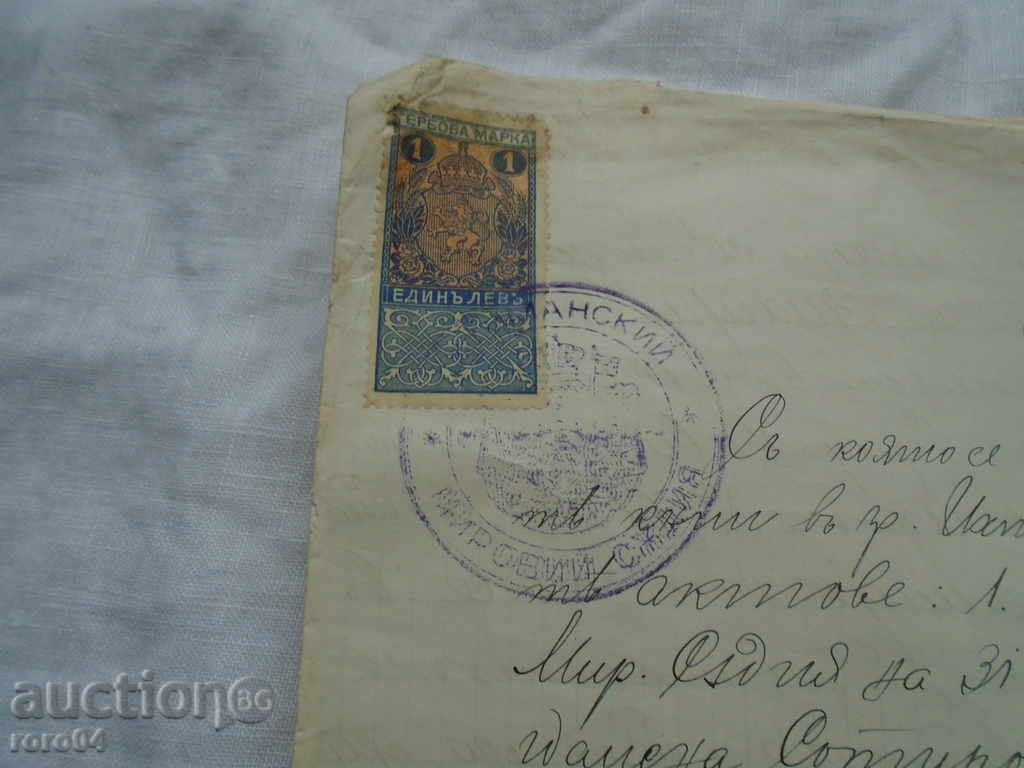 ЕРБОВА МАРКА
1 1
ЕДИНЪ ЛЕВЪ
АНСКИЙ
* МИРОВИЙ СѪДИЯ *
Съ която се
тѣ книги въ гр.
тѣ актове: 1.
Мир. Сѫдия на 31
auctionBG
roro04